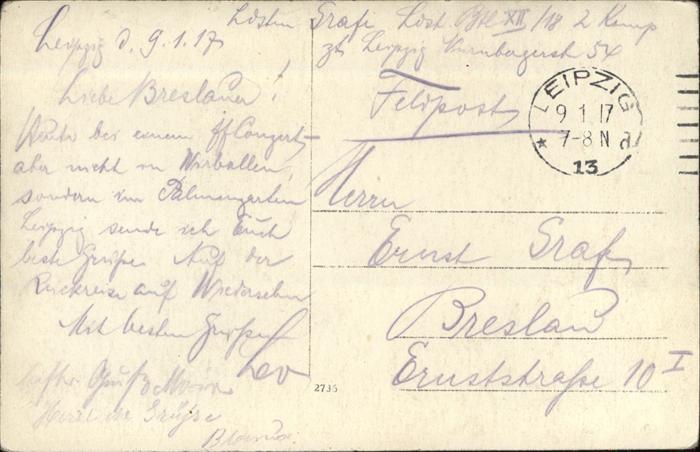 Ldstm Graf Ldst. Btl XII/18 2 Komp
zt Leipzig Nürnbergerstr 54
Leipzig d. 9.1.17
Liebe Breslauer!
Heute bei einem Conzert
aber nicht in Wirballen,
sondern im Palmengarten
Leipzig sende ich Euch
beste Grüße. Auf der
Rückreise auf Wiedersehen
Mit besten Grüßen
Leo
Grüße
Feldpost
LEIPZIG
9 1 17
7-8 N
13
Herrn
Ernst Graf,
Breslau
Ernststraße 10 I
2735